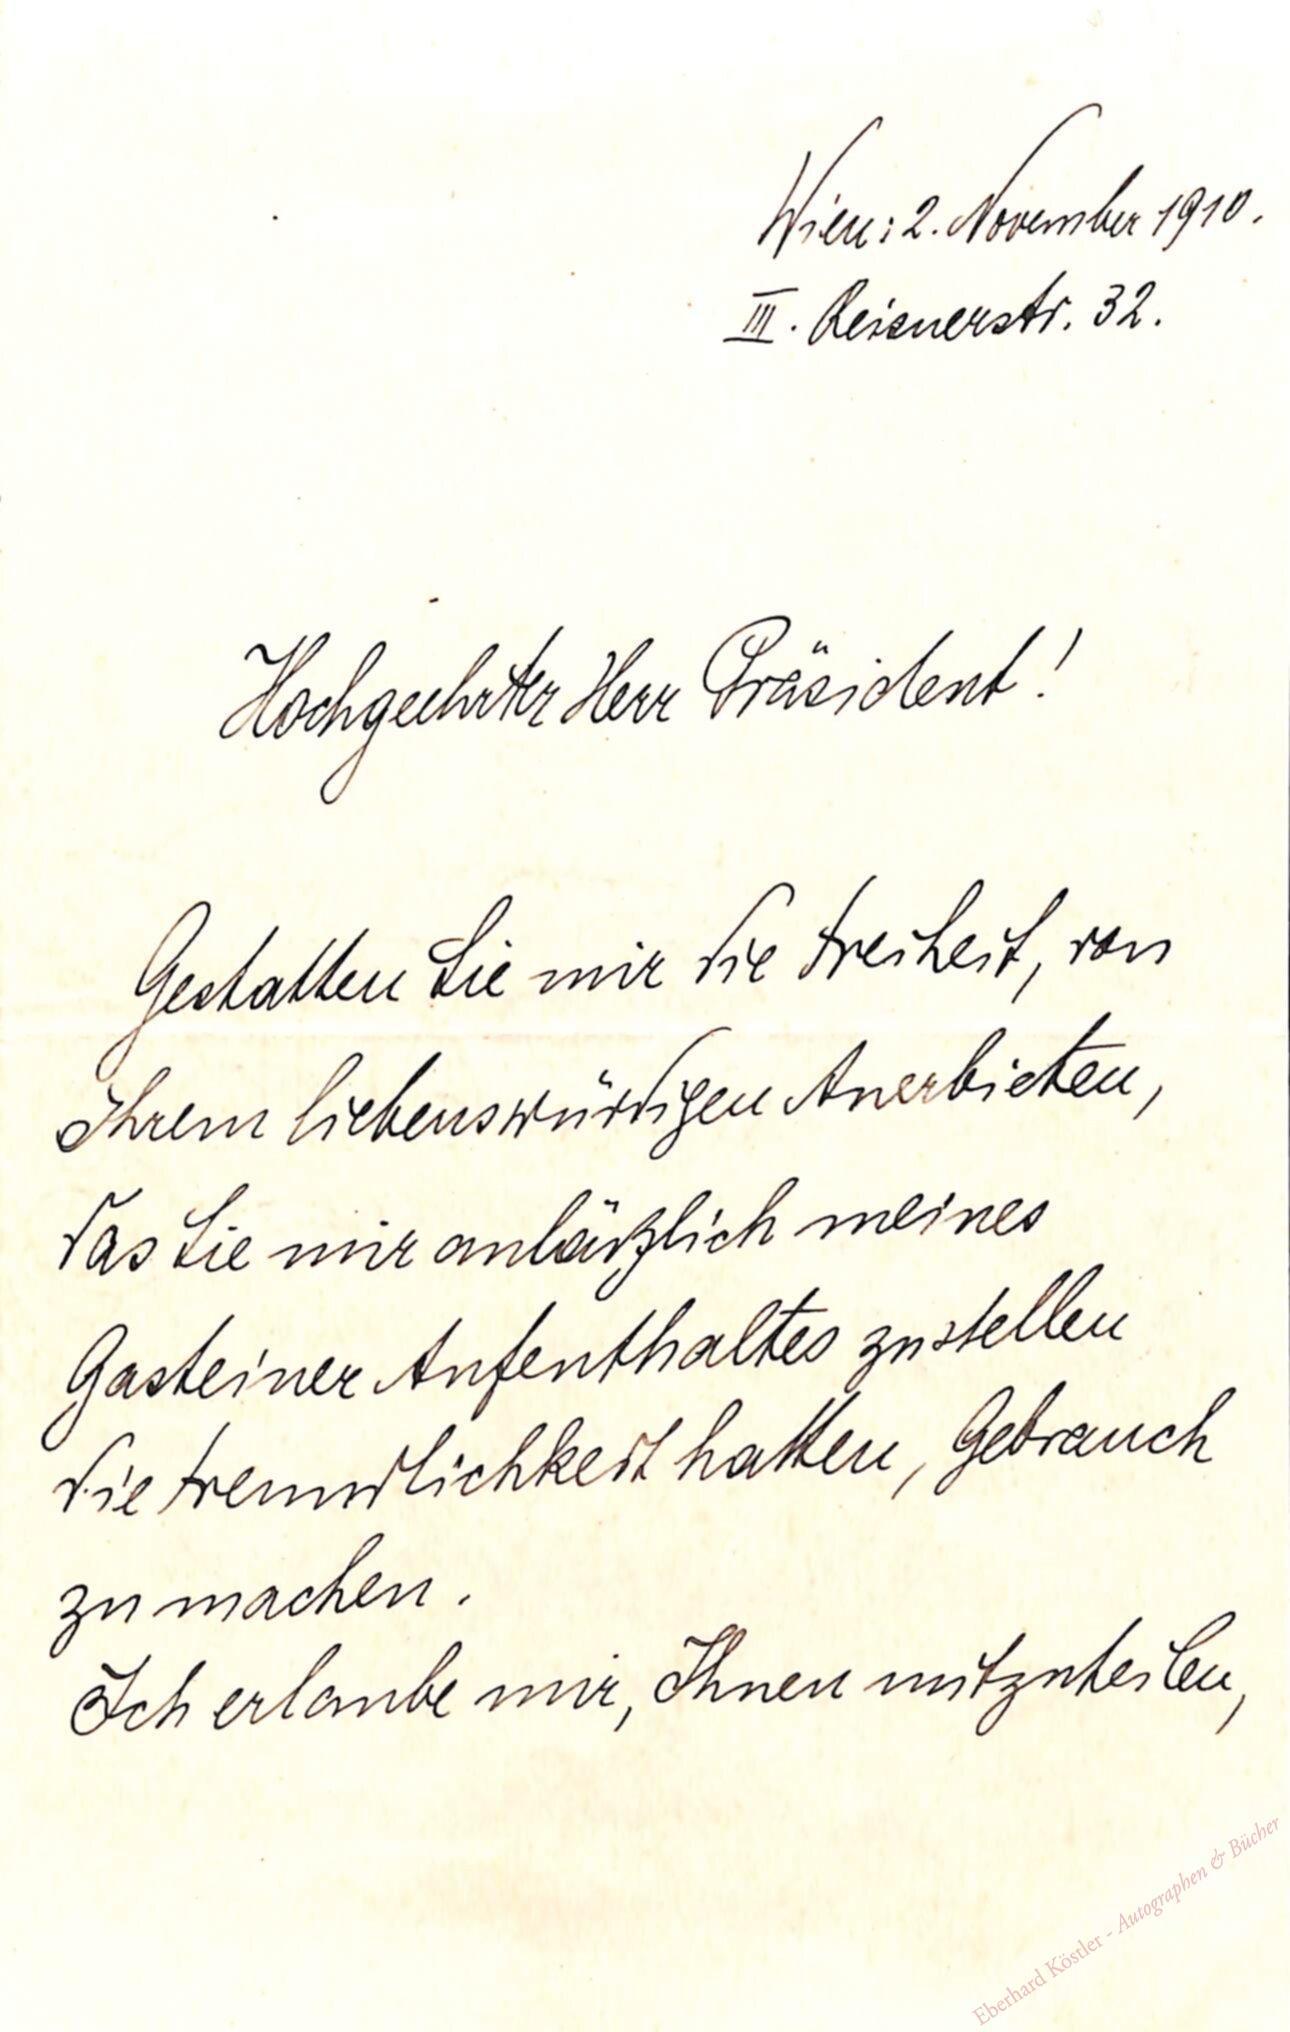 Wien: 2. November 1910.
III. Reisnerstr. 32.
Hochgeehrter Herr Präsident!
Gestatten Sie mir die Freiheit, von
Ihrem liebenswürdigen Anerbieten,
das Sie mir anläßlich meines
Gasteiner Aufenthaltes zustellen
die Freundlichkeit hatten, Gebrauch
zu machen.
Ich erlaube mir, Ihnen mitzuteilen,
Eberhard Köstler - Autographen & Bücher